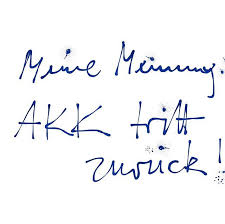 Meine Meinung:
AKK tritt
zurück!